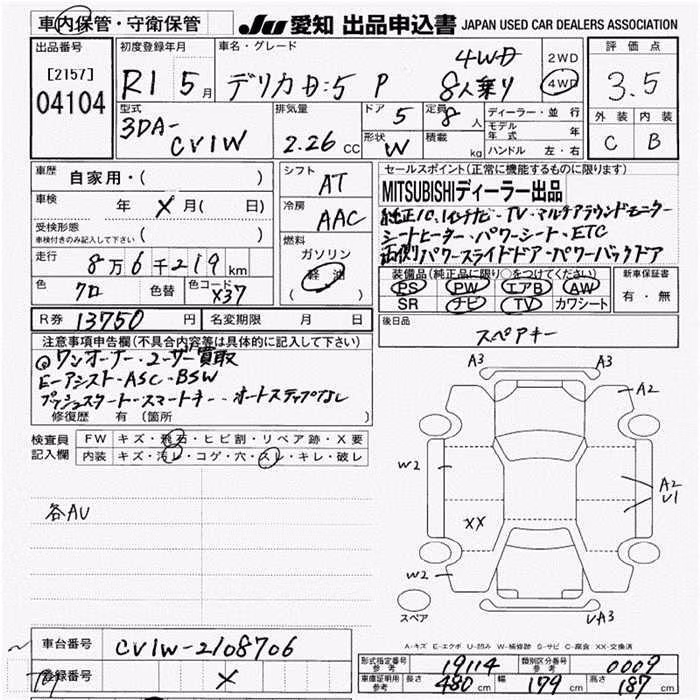 車内保管・守衛保管
JU 愛知 出品申込書 JAPAN USED CAR DEALERS ASSOCIATION
出品番号
[2157]
04104
初度登録年月
R1 5月
車名・グレード
デリカD:5 P 4WD 8人乗り
2WD
4WD
評価点
3.5
外装 内装
C B
型式
3DA-
CV1W
排気量
2.26 CC
ドア 5
形状 W
定員 8人
積載 kg
ディーラー・並行
モデル年式 年
ハンドル 左・右
車歴
自家用・( )
車検 年 X月( 日)
受検形態
車検付きのみ記入して下さい ( )
走行 8万6千219km
色 クロ 色替 色コード X37
シフト AT
冷房 AAC
燃料
ガソリン
軽油
( )
セールスポイント(正常に機能するものに限ります)
MITSUBISHIディーラー出品
純正10.1インチナビ・TV・マルチアラウンドモニター
シートヒーター・パワーシート・ETC
両側パワースライドドア・パワーバックドア
装備品(純正品に限り○をつけてください)
PS PW エアB AW
SR ナビ TV カワシート
新車保証書
有・無
R券 13750円 名変期限 月 日
後日品
スペアキー
注意事項申告欄(不具合内容等は具体的に記入して下さい)
◎ワンオーナー・ユーザー買取
E-アシスト・ASC・BSW
プッシュスタート・スマートキー・オートステップなし
修復歴 有〔箇所 〕
検査員記入欄
FW キズ・飛石・ヒビ割・リペア跡・X要
内装 キズ・汚レ・コゲ・穴・スレ・キレ・破レ
各AU
A3 A3
A2
W2
A2
U1
XX
W2
UA3
スペア
A-キズ E-エクボ U-凹み W-補修跡 S-サビ C-腐食 XX-交換済
車台番号 CV1W-2108706
登録番号 X
形式指定番号 参考 19114 類別区分番号 参考 0009
車庫証明用 参考 長さ 480cm 幅 179cm 高さ 187cm